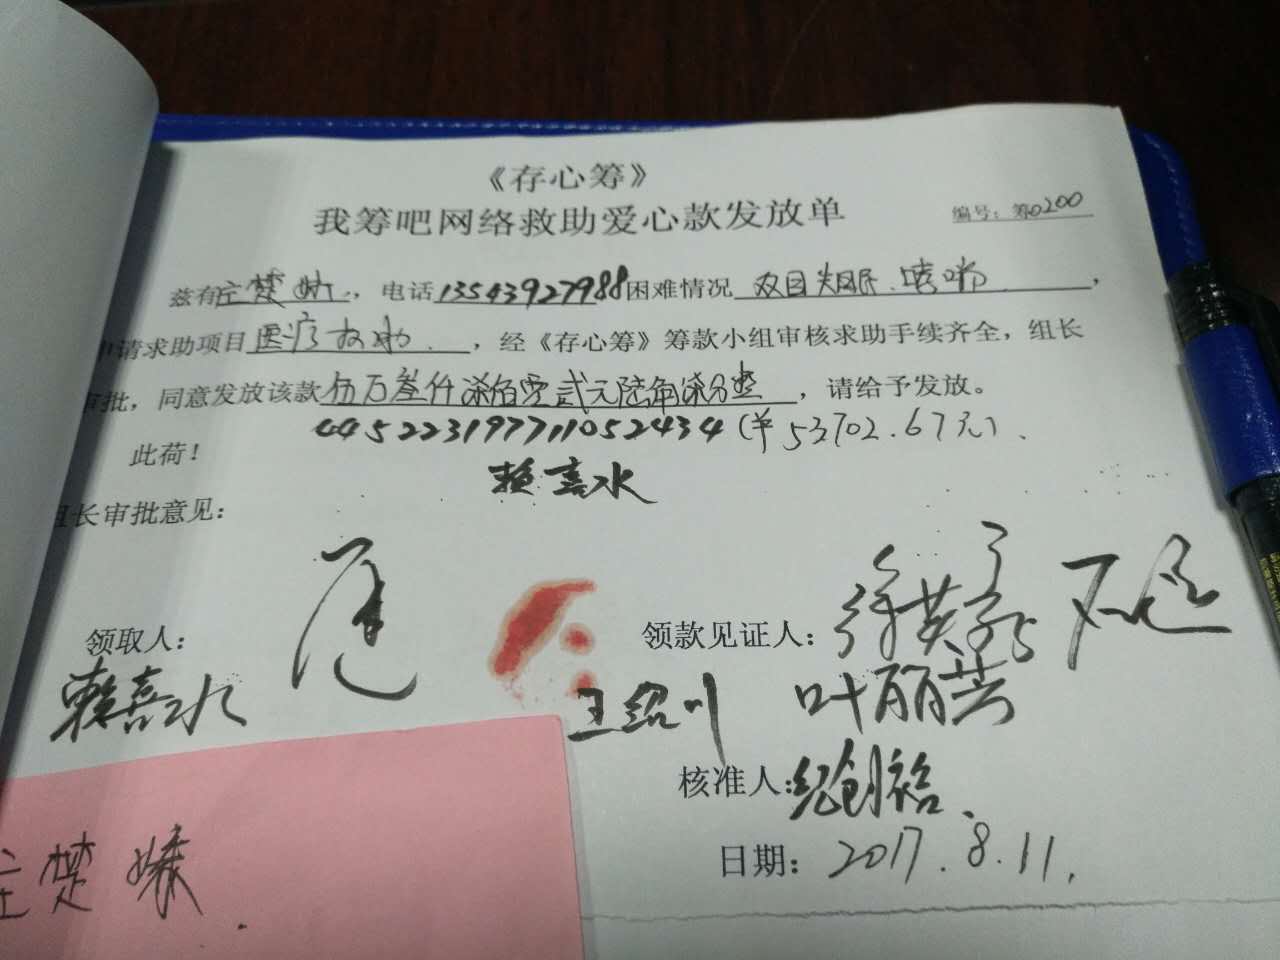 《存心筹》
我筹吧网络救助爱心款发放单
编号：筹0200
兹有庄楚娇，电话13543927988困难情况双目失明、哮喘，
申请求助项目医疗救助，经《存心筹》筹款小组审核求助手续齐全，组长
审批，同意发放该款伍万叁仟柒佰零贰元陆角柒分整，请给予发放。
445223197711052434（￥53702.67元）、
此荷！
赖喜水
组长审批意见：
领取人：
领款见证人：
赖喜水
王绍川 叶丽芸
核准人：纪创裕、
日期：2017.8.11.
庄楚